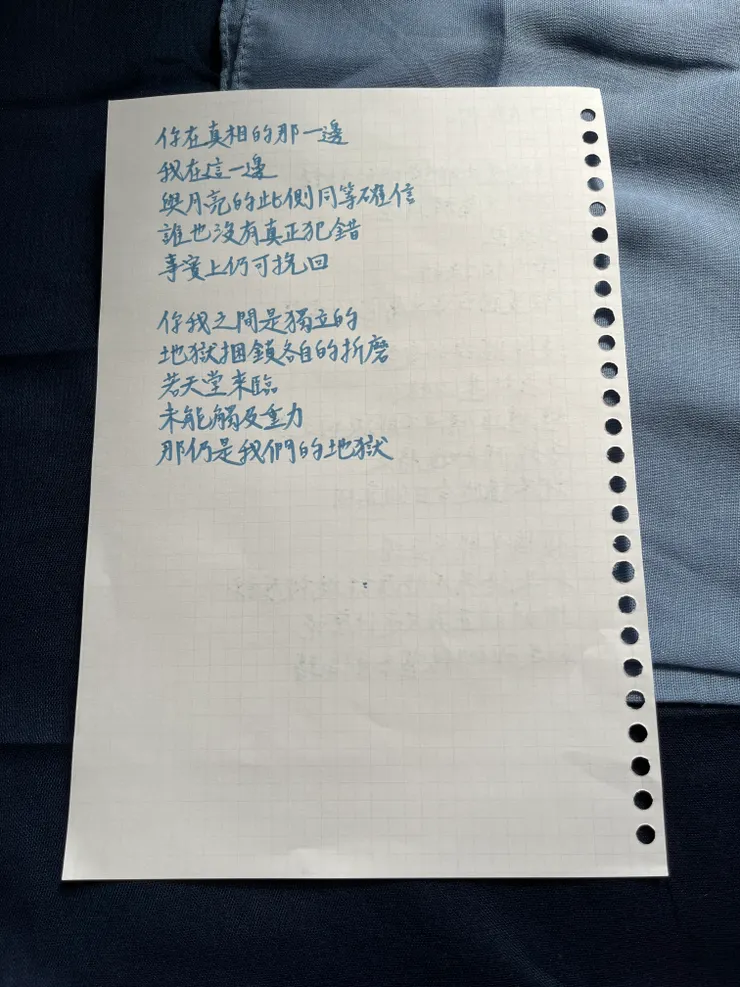 你在真相的那一邊
我在這一邊
與月亮的此側同等確信
誰也沒有真正犯錯
事實上仍可挽回
你我之間是獨立的
地獄捆鎖各自的折磨
若天堂來臨
未能觸及重力
那仍是我們的地獄